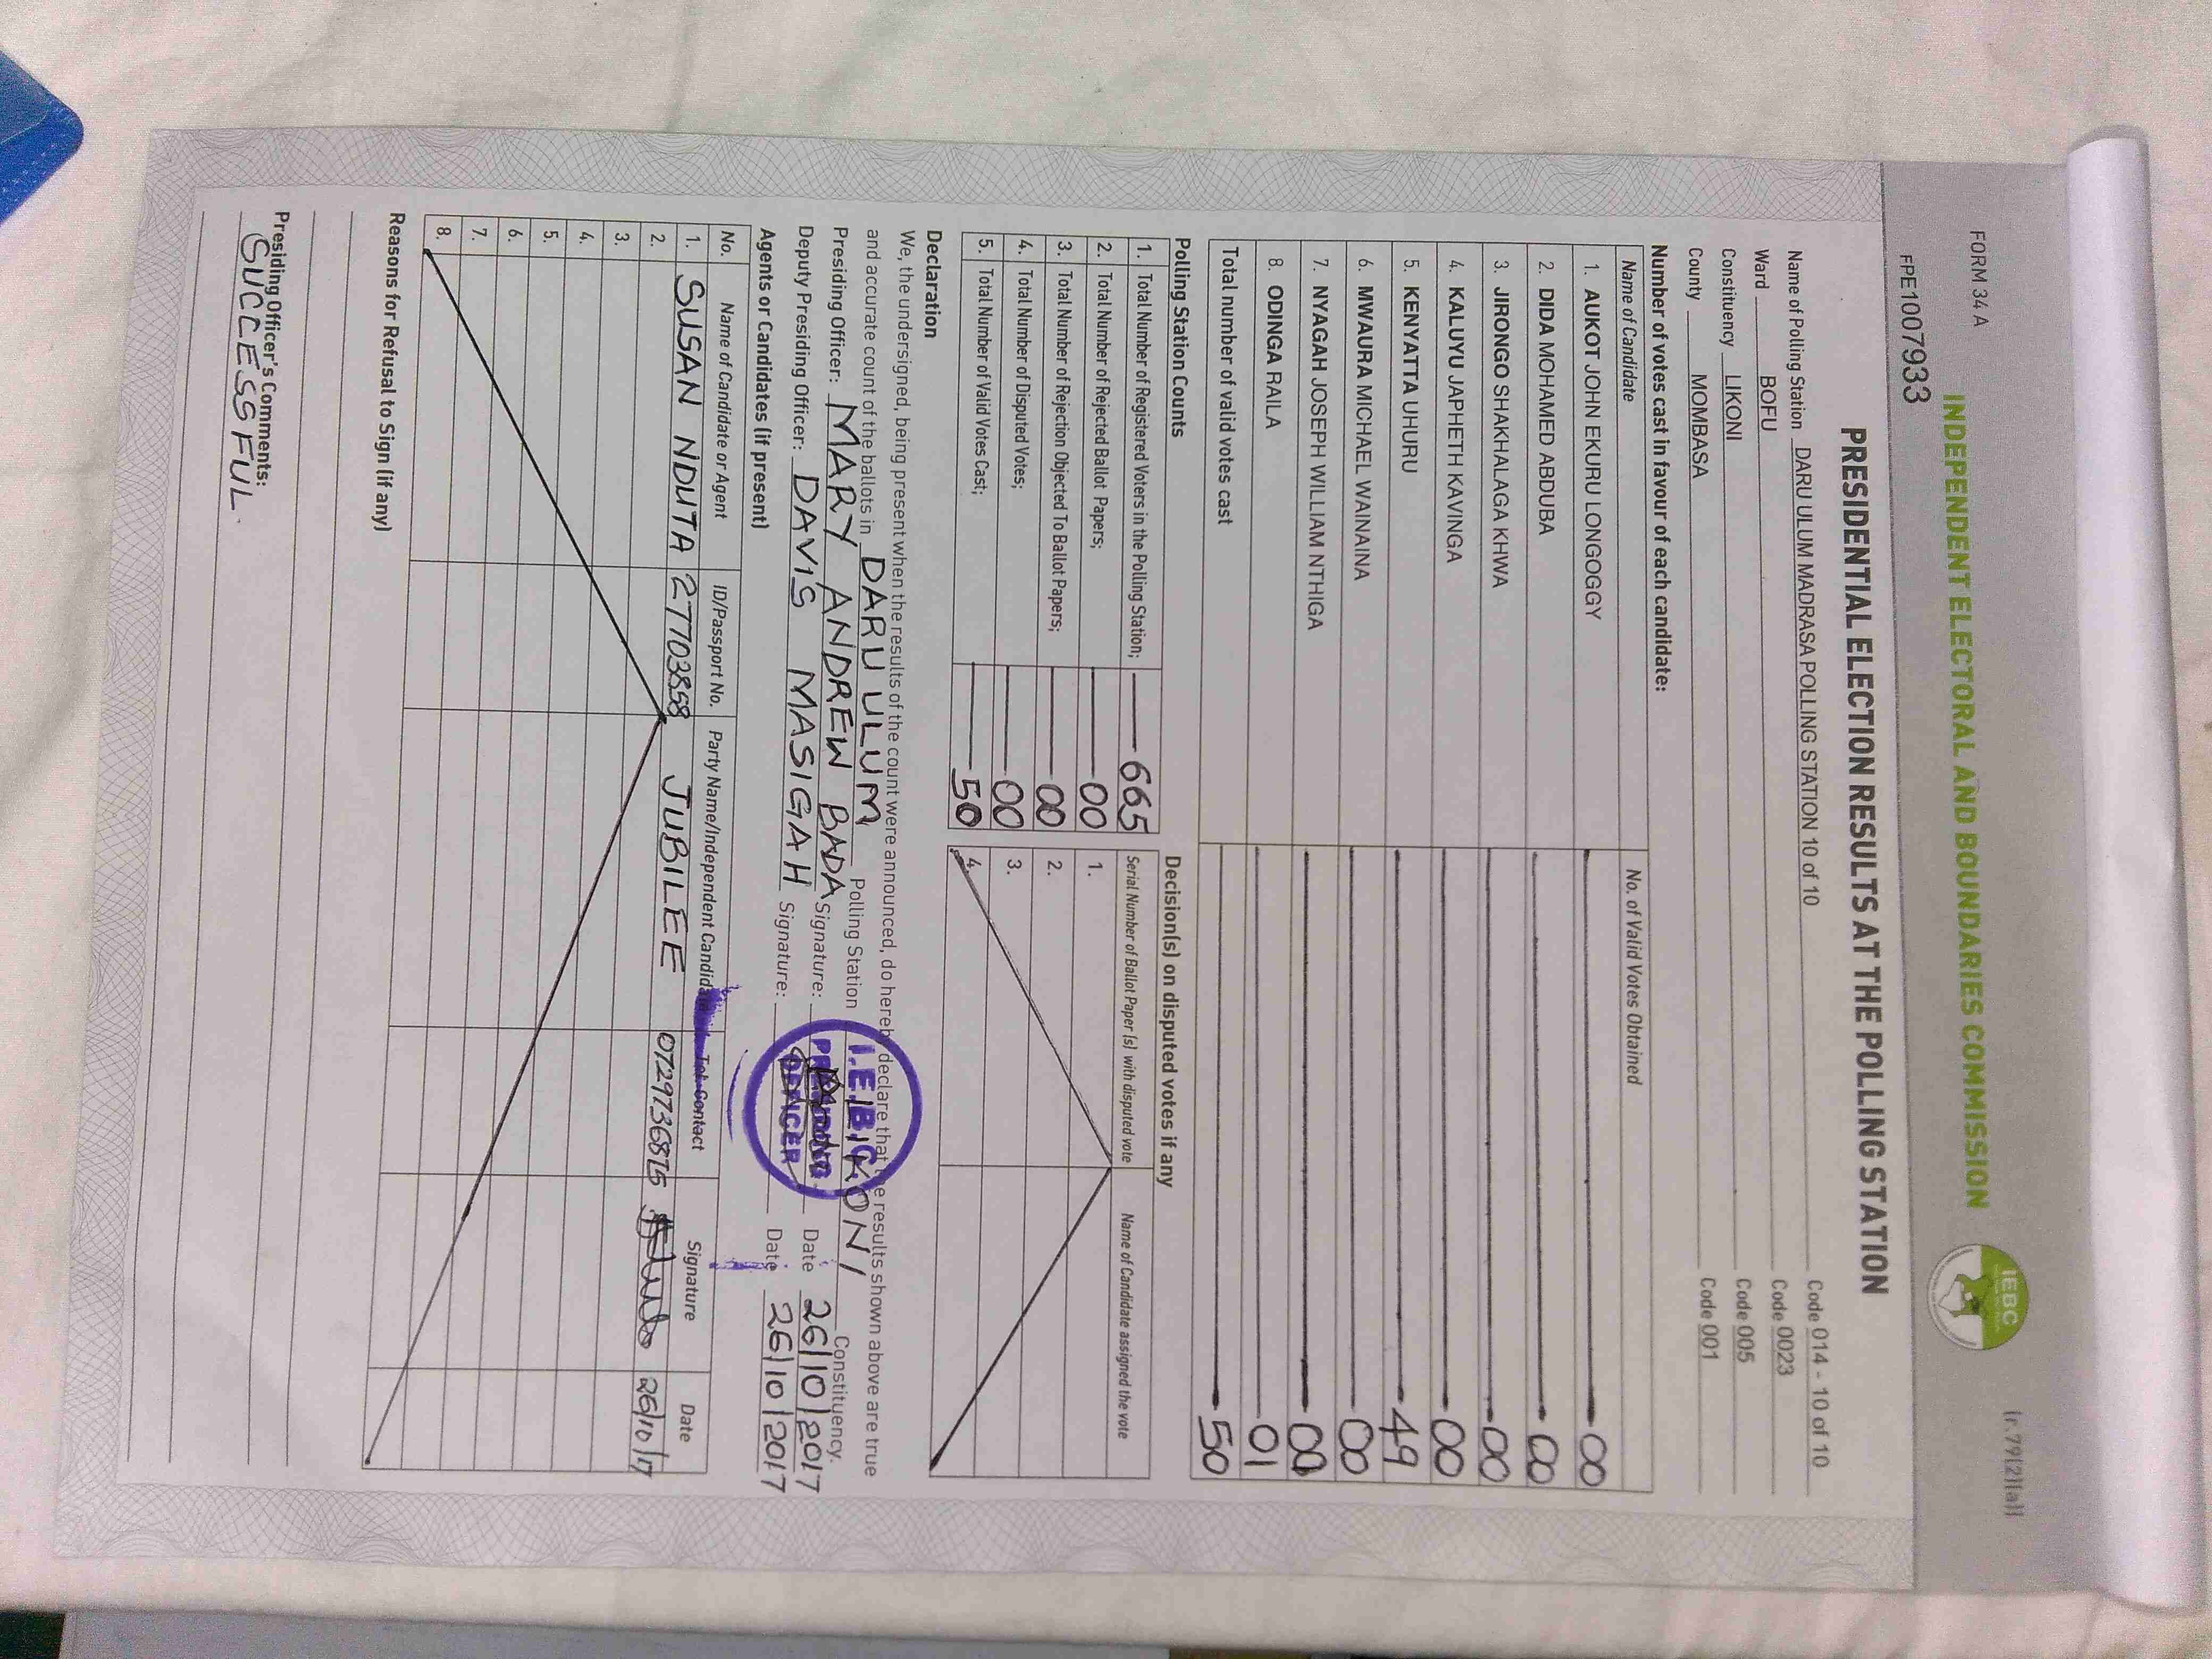 FORM 34 A
(r.79(2)(a))
INDEPENDENT ELECTORAL AND BOUNDARIES COMMISSION
IEBC
FPE1007933
PRESIDENTIAL ELECTION RESULTS AT THE POLLING STATION
Name of Polling Station DARU ULUM MADRASA POLLING STATION 10 of 10 Code 014 - 10 of 10
Ward BOFU Code 0023
Constituency LIKONI Code 005
County MOMBASA Code 001
Number of votes cast in favour of each candidate:
Name of Candidate No. of Valid Votes Obtained
1. AUKOT JOHN EKURU LONGOGGY 00
2. DIDA MOHAMED ABDUBA 00
3. JIRONGO SHAKHALAGA KHWA 00
4. KALUYU JAPHETH KAVINGA 00
5. KENYATTA UHURU 49
6. MWAURA MICHAEL WAINAINA 00
7. NYAGAH JOSEPH WILLIAM NTHIGA 00
8. ODINGA RAILA 01
Total number of valid votes cast 50
Polling Station Counts
1. Total Number of Registered Voters in the Polling Station; 665
2. Total Number of Rejected Ballot Papers; 00
3. Total Number of Rejection Objected To Ballot Papers; 00
4. Total Number of Disputed Votes; 00
5. Total Number of Valid Votes Cast; 50
Decision(s) on disputed votes if any
Serial Number of Ballot Paper (s) with disputed vote Name of Candidate assigned the vote
1.
2.
3.
4.
Declaration
We, the undersigned, being present when the results of the count were announced, do hereby declare that the results shown above are true
and accurate count of the ballots in DARU ULUM Polling Station LIKONI Constituency.
Presiding Officer: MARY ANDREW BADA Signature: Date 26/10/2017
Deputy Presiding Officer: DAVIS MASIGAH Signature: Date 26/10/2017
I.E.B.C
PRESIDING
OFFICER
Agents or Candidates (if present)
No. Name of Candidate or Agent ID/Passport No. Party Name/Independent Candidate Tel. Contact Signature Date
1. SUSAN NDUTA 27703858 JUBILEE 0729736875 26/10/17
2.
3.
4.
5.
6.
7.
8.
Reasons for Refusal to Sign (if any)
Presiding Officer's Comments:
SUCCESSFUL.